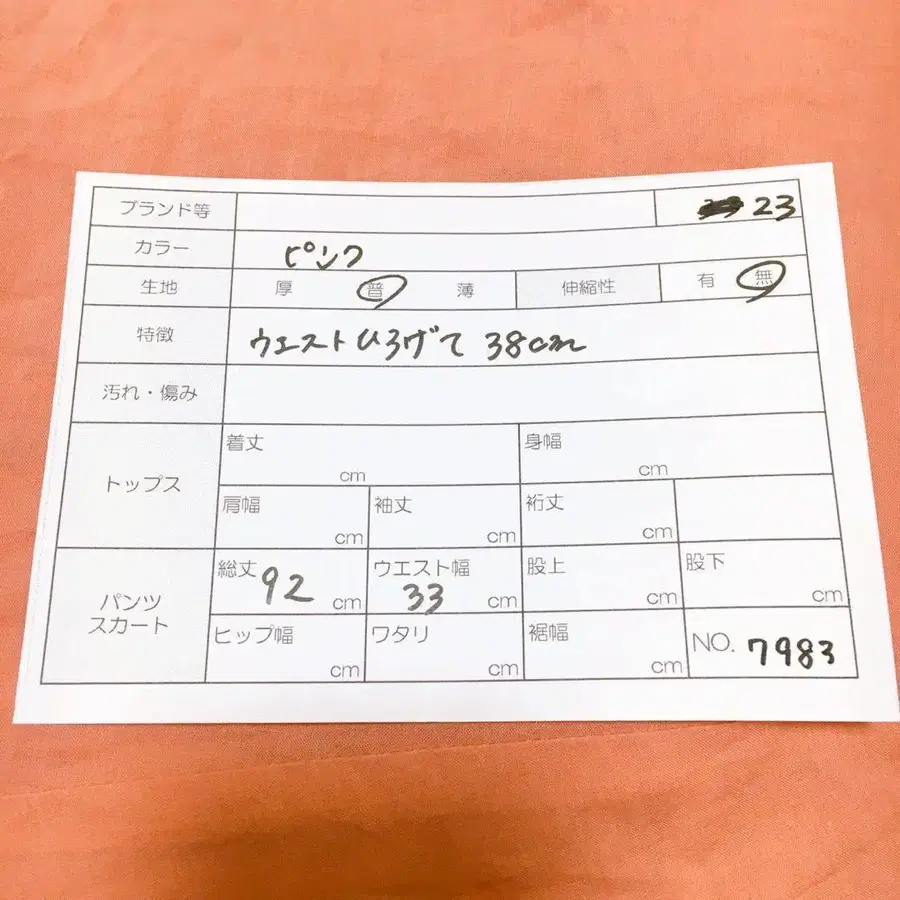 ブランド等 23
カラー ピンク
生地 厚 普 薄 伸縮性 有 無
特徴 ウエストひろげて 38cm
汚れ・傷み
トップス
着丈 cm 身幅 cm
肩幅 cm 袖丈 cm 裄丈 cm
パンツ
スカート
総丈 92 cm ウエスト幅 33 cm 股上 cm 股下 cm
ヒップ幅 cm ワタリ cm 裾幅 cm NO. 7983